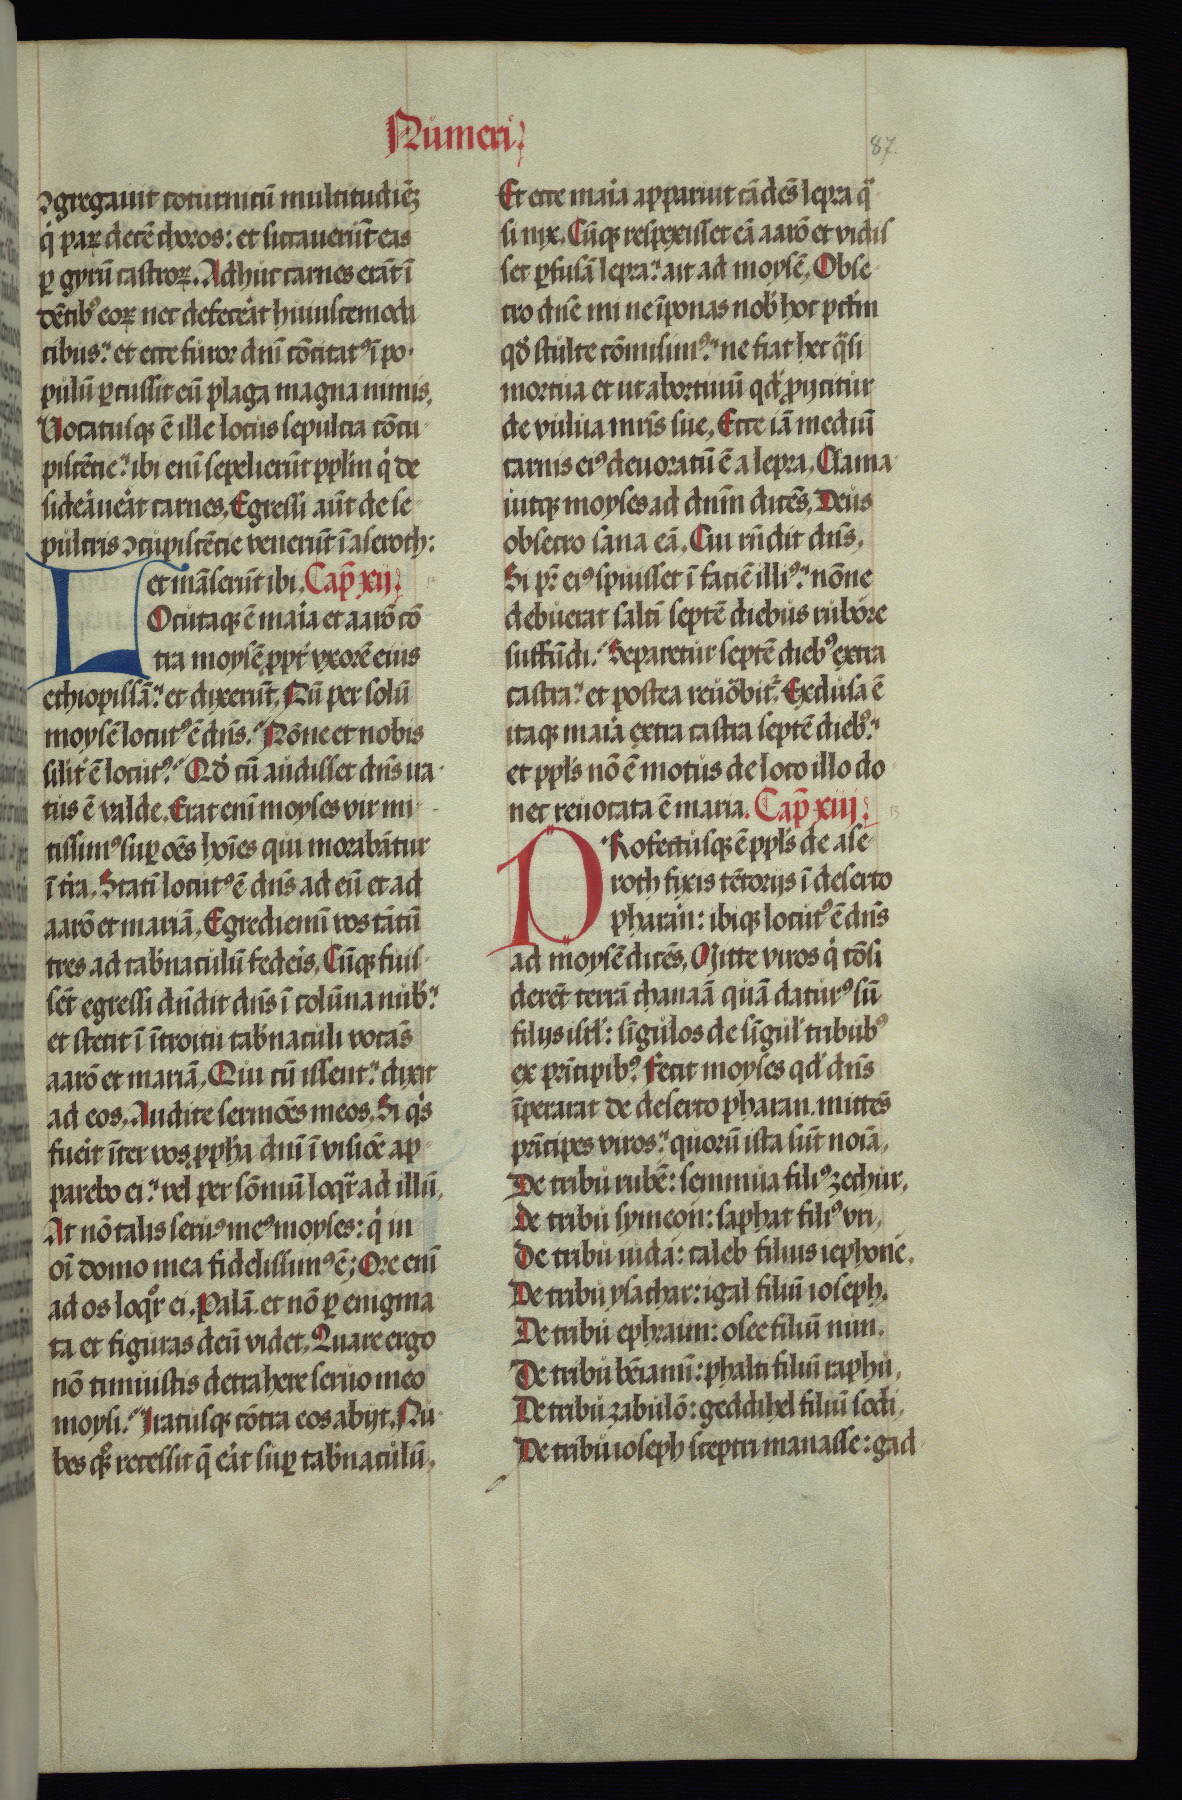 Numeri.
87.
ꝯgregauit coturnicū multitudiēꝫ
q̇ paꝝ decē choros: et siccauerūt eas
ꝑ gyrū castroꝝ. Adhuc carnes erāt ī
dētibꝰ eoꝝ nec defecer̄at huiuscemodi
cibus: et ecce furor dn̄i cōcitatꝰ ī po-
pulū ꝑcussit eū plaga magna nimis.
Vocatusqꝫ ē ille locus sepulcra cōcu-
piscētie: ibi enī sepelierūt ppl̄m q̇ de
sideāueāt carnes. Egressi aūt de se-
pulcris ꝯcupiscētie venerūt ī aseroth:
et māserūt ibi. Cap̄ xij.
LOcutaqꝫ ē maīa et aarō cō
tra moysē ppt̄ vxorē eius
ethiopissā: et dixerūt. Nū per solū
moysē locutꝰ ē dn̄s. Nōne et nobis
silit̄ ē locutꝰ. Qd̄ cū audisset dn̄s ira-
tus ē valde. Erat enī moyses vir mi-
tissimꝰ suꝑ oēs hoīes qui morabātur
ī tr̄a. Statī locutꝰ ē dn̄s ad eū et ad
aarō et mariā. Egrediemī vos tātū
tres ad tab̄naculū federis. Cūqꝫ fuis-
sēt egressi dn̄dit dn̄s ī colūna nub̄:
et stetit ī ītroitu tab̄naculi vocās
aarō et mariā. Qui cū issent: dixit
ad eos. Audite sermōes meos. Si q̇s
fueīt īter vos ꝓpha dn̄i ī visiōe ap-
parebo ei: vel per sōniū loqr̄ ad illū.
At nō talis seruꝰ meꝰ moyses: q̇ in
oī domo mea fidelissimꝰ ē; Ore enī
ad os loqr̄ ei. Palā. et nō ꝑ enigma
ta et figuras deū videt. Quare ergo
nō timuistis detrahere seruo meo
moysi. Iratusqꝫ cōtra eos abijt. Nu-
bes qꝫ recessit q̄ eāt suꝑ tab̄naculū.
Et ecce maīa apparuit cādēs lepra q̄
si nix. Cūqꝫ respexisset eā aarō et vidis
set ꝑfusā lepra: ait ad moysē. Obse-
cro dn̄e mi ne īponas nob̄ hoc pctm̄
qd̄ stulte cōmisimꝰ: ne fiat hec q̄si
mortua et ut abortiuū qd̄ ꝓijcitur
de vulua mr̄is sue. Ecce iā mediū
carnis eiꝰ deuoratū ē a lepra. Clama
uitqꝫ moyses ad dn̄m dicēs. Deus
obsecro sana eā. Cui rn̄dit dn̄s.
Si pr̄ eiꝰ spuisset ī faciē illiꝰ: nōne
debuerat saltī septē diebus rubore
suffūdi. Separetur septē diebꝰ extra
castra: et postea reuōbit̄. Exclusa ē
itaqꝫ maīa extra castra septē diebꝰ:
et ppl̄s nō ē motus de loco illo do
nec reuocata ē maria. Cap̄ xiij.
13
PRofectusqꝫ ē ppl̄s de ase-
roth fixis tētorijs ī deserto
pharan: ibiqꝫ locutꝰ ē dn̄s
ad moysē dicēs. Mitte viros q̇ cōsi
derēt terrā chanaā quā daturꝰ sū
filijs isrl̄: sīgulos de sīgul̄ tribubꝰ
ex prīcipibꝰ. Fecit moyses qd̄ dn̄s
īperarat de deserto pharan. mittēs
prīcipes viros: quorū ista sūt noīa.
De tribu rubē: semmua filiꝰ zechur.
De tribu symeon: saphat filiꝰ vri.
De tribu iuda: caleb filius iephone.
De tribu ysachar: igal filiū ioseph.
De tribu ephraim: osee filiū nun.
De tribu bēiamī: phalti filiū raphu.
De tribu zabulō: geddihel filiū sodi.
De tribu ioseph sceptri manasse: gad-